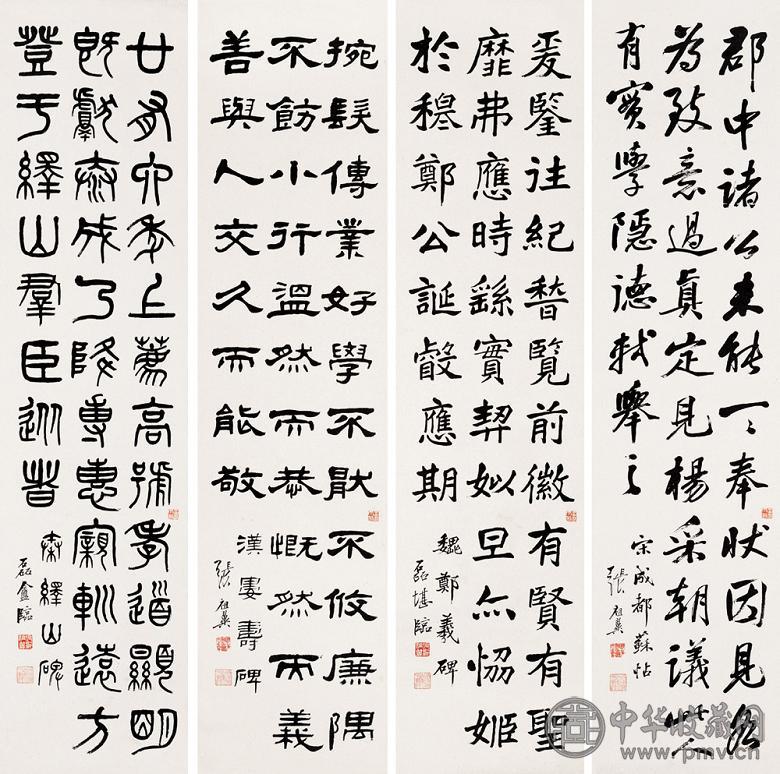 郡中諸公未能一一奉狀因見各
為致意過真定見楊采朝議此人
有實學隱德軾舉之
宋成都蘇帖
張祖翼
爰鑒往紀稽覽前徽有賢有聖
靡弗應時繇實契姒旦亦協姬
於穆鄭公誕叡應期
魏鄭羲碑
磊堪臨
捖髮傳業好學不厭不攸廉隅
不飭小行溫然而恭慨然而義
善與人交久而能敬
漢婁壽碑
張祖翼
廿有六年上薦高號孝道顯明
既獻泰成乃降專惠寴巡遠方
登于繹山群臣從者
秦繹山碑
磊盦臨
中华收藏网
www.pmv.cn